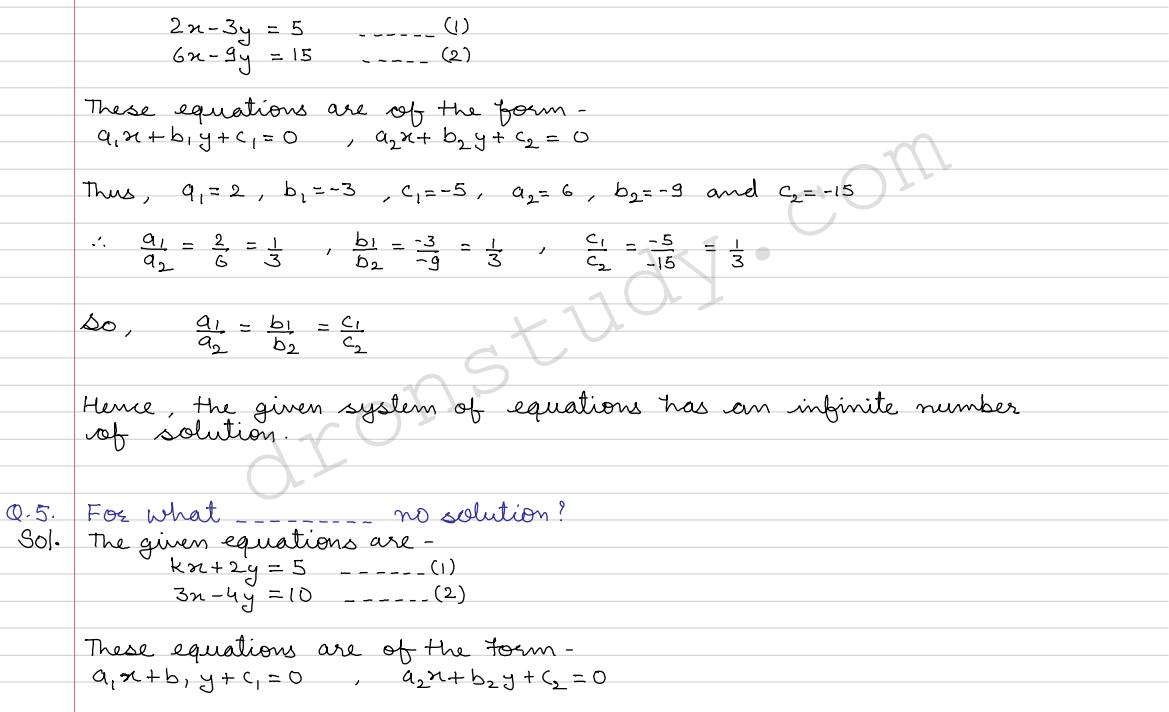 2x-3y = 5 ------ (1)
6x-9y = 15 ----- (2)
These equations are of the form -
a₁x+b₁y+c₁=0 , a₂x+ b₂y+ c₂= 0
Thus, a₁= 2 , b₁=-3 , c₁=-5, a₂= 6 , b₂=-9 and c₂=-15
∴ a₁/a₂ = 2/6 = 1/3 , b₁/b₂ = -3/-9 = 1/3 , c₁/c₂ = -5/-15 = 1/3
So, a₁/a₂ = b₁/b₂ = c₁/c₂
Hence, the given system of equations has an infinite number
of solution.
Q.5. For what --------- no solution?
Sol. The given equations are -
kx+2y = 5 ------(1)
3x-4y =10 ------(2)
These equations are of the form -
a₁x+b₁y+c₁=0 , a₂x+b₂y+c₂=0
dronstudy.com